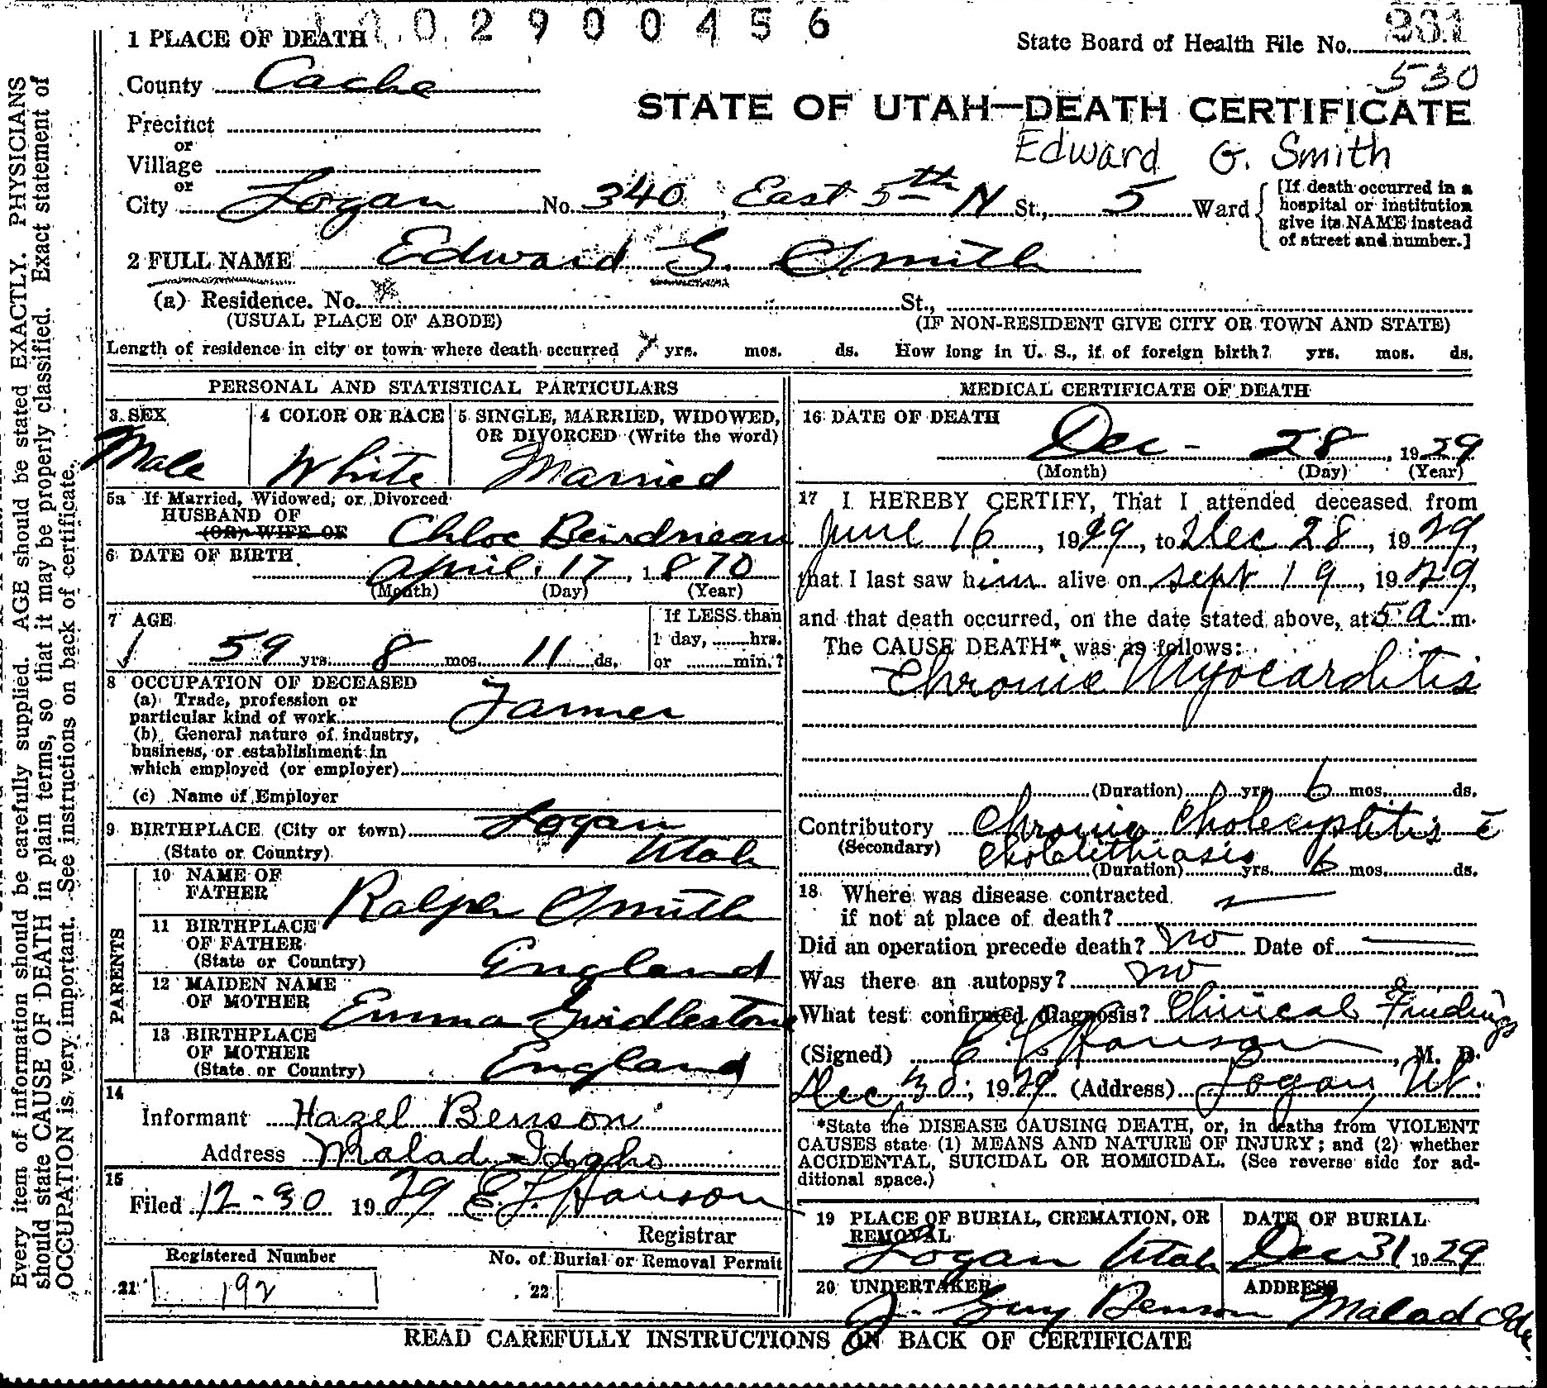 1002900456
1 PLACE OF DEATH
State Board of Health File No. 331
530
County Cache
STATE OF UTAH—DEATH CERTIFICATE
Precinct
or
Edward G. Smith
Village
or
City Logan No. 340, East 5th N St., 5 Ward
[If death occurred in a
hospital or institution
give its NAME instead
of street and number.]
2 FULL NAME Edward G. Smith
(a) Residence. No. St.,
(USUAL PLACE OF ABODE) (IF NON-RESIDENT GIVE CITY OR TOWN AND STATE)
Length of residence in city or town where death occurred yrs. mos. ds. How long in U. S., if of foreign birth? yrs. mos. ds.
PERSONAL AND STATISTICAL PARTICULARS
3 SEX
Male
4 COLOR OR RACE
White
5 SINGLE, MARRIED, WIDOWED,
OR DIVORCED (Write the word)
Married
5a If Married, Widowed, or Divorced
HUSBAND OF
(OR) WIFE OF Chloe Beirdneau
6 DATE OF BIRTH
April 17, 1870
(Month) (Day) (Year)
7 AGE
59 yrs. 8 mos. 11 ds.
If LESS than
1 day, hrs.
or min.?
8 OCCUPATION OF DECEASED
(a) Trade, profession or
particular kind of work Farmer
(b) General nature of industry,
business, or establishment in
which employed (or employer)
(c) Name of Employer
9 BIRTHPLACE (City or town) Logan
(State or Country) Utah
PARENTS
10 NAME OF
FATHER Ralph Smith
11 BIRTHPLACE
OF FATHER
(State or Country) England
12 MAIDEN NAME
OF MOTHER Emma Girdlestone
13 BIRTHPLACE
OF MOTHER
(State or Country) England
14
Informant Hazel Benson
Address Malad Idaho
15
Filed 12-30 1929 E. F. Hanson
Registrar
Registered Number No. of Burial or Removal Permit
21 192 22
MEDICAL CERTIFICATE OF DEATH
16 DATE OF DEATH
Dec - 28, 1929
(Month) (Day) (Year)
17 I HEREBY CERTIFY, That I attended deceased from
June 16, 1929, to Dec 28, 1929,
that I last saw him alive on Sept 19, 1929,
and that death occurred, on the date stated above, at 5 a. m.
The CAUSE DEATH*, was as follows:
Chronic Myocarditis
(Duration) yrs. 6 mos. ds.
Contributory Chronic Cholecystitis c̄
(Secondary) Cholelithiasis
(Duration) yrs. 6 mos. ds.
18 Where was disease contracted
if not at place of death?
Did an operation precede death? No Date of
Was there an autopsy? No
What test confirmed diagnosis? Clinical Findings
(Signed) Hanson, M. D.
Dec 30, 1929 (Address) Logan, Ut.
*State the DISEASE CAUSING DEATH, or, in deaths from VIOLENT
CAUSES state (1) MEANS AND NATURE OF INJURY; and (2) whether
ACCIDENTAL, SUICIDAL OR HOMICIDAL. (See reverse side for ad-
ditional space.)
19 PLACE OF BURIAL, CREMATION, OR
REMOVAL
Logan Utah
DATE OF BURIAL
Dec 31 1929
20 UNDERTAKER
J. Guy Benson
ADDRESS
Malad Ida.
READ CAREFULLY INSTRUCTIONS ON BACK OF CERTIFICATE
Every item of information should be carefully supplied. AGE should be stated EXACTLY. PHYSICIANS
should state CAUSE OF DEATH in plain terms, so that it may be properly classified. Exact statement of
OCCUPATION is very important. See instructions on back of certificate.